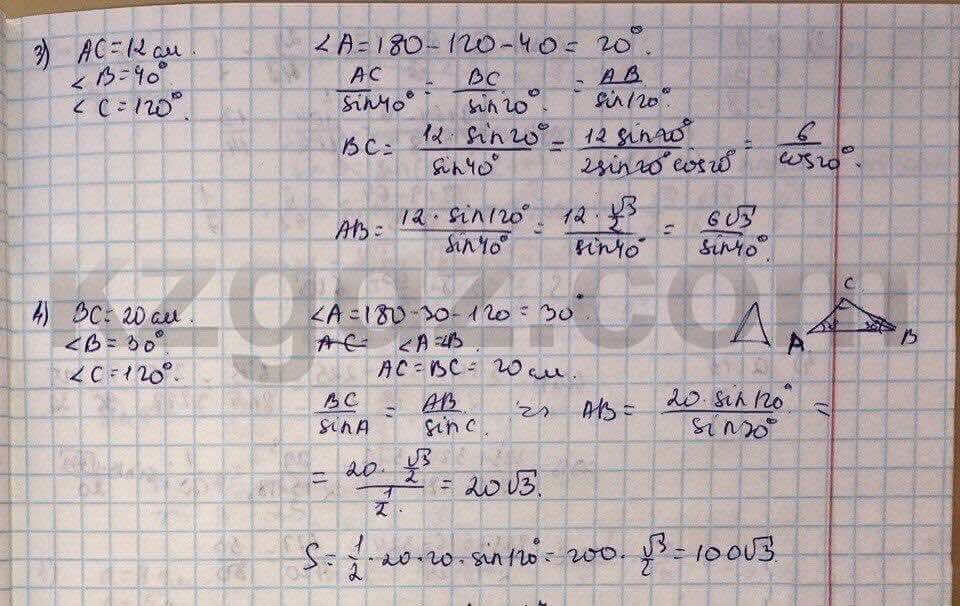 3) AC=12см. ∠A=180-120-40=20°.
∠B=40°. AC/sin40° = BC/sin20°. = AB/sin120°.
∠C=120°.
BC= 12·sin20°/sin40° = 12sin20°/2sin20°cos20° = 6/cos20°.
AB= 12·sin120°/sin40° = 12·√3/2/sin40° = 6√3/sin40°.
kzgdz.com
4) BC=20см. ∠A=180-30-120=30°.
∠B=30°. AC= ∠A=∠B.
∠C=120°. AC=BC=20см.
C
A B
BC/sinA = AB/sinC. => AB= 20·sin120°/sin20° =
= 20·√3/2 / 1/2. = 20√3.
S= 1/2·20·20·sin120°=200·√3/2=100√3.